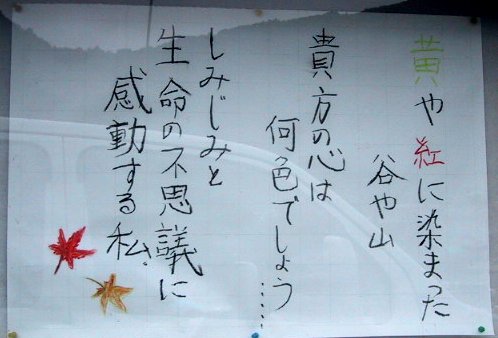 黄や紅に染まった
谷や山
貴方の心は
何色でしょう……
しみじみと
生命の不思議に
感動する私